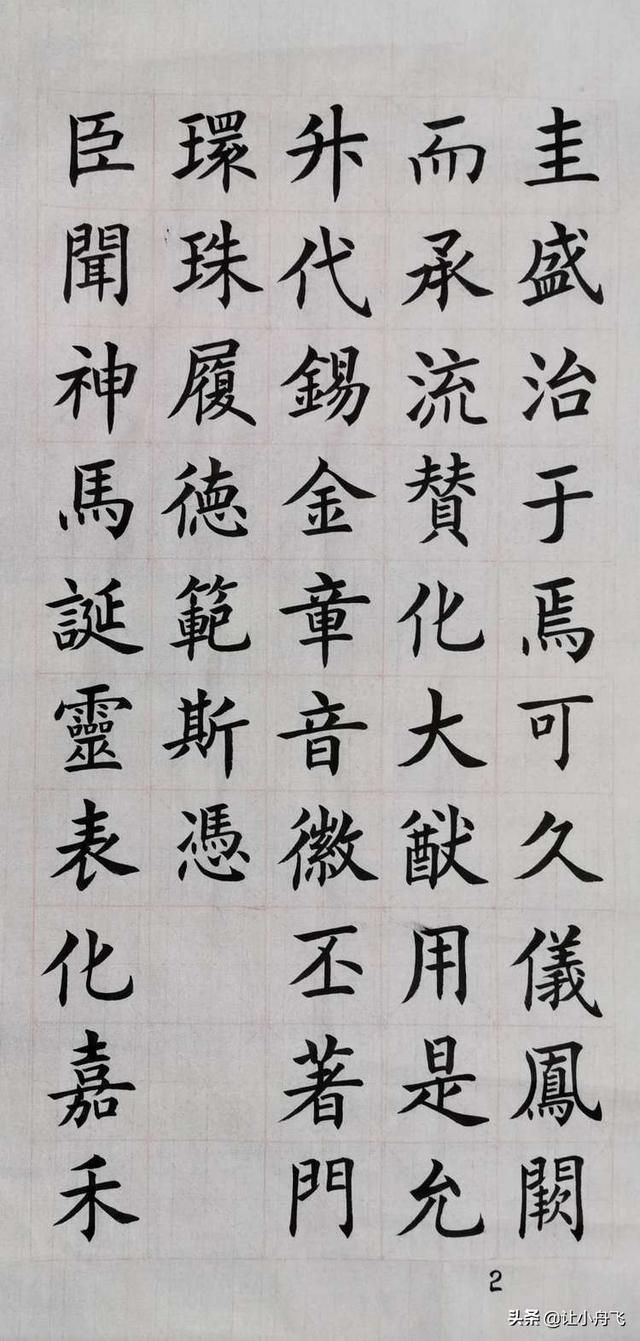 圭盛治于焉可久儀鳳闕
而承流賛化大猷用是允
升代錫金章音徽丕著門
環珠履德範斯憑
臣聞神馬誕靈表化嘉禾
2
头条 @让小舟飞